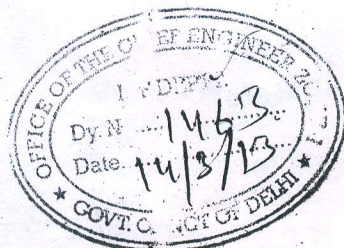 OFFICE OF THE CHIEF ENGINEER
DEPTT.
Dy. N ..... 1463
Date. 14/3/13
GOVT. OF NCT OF DELHI